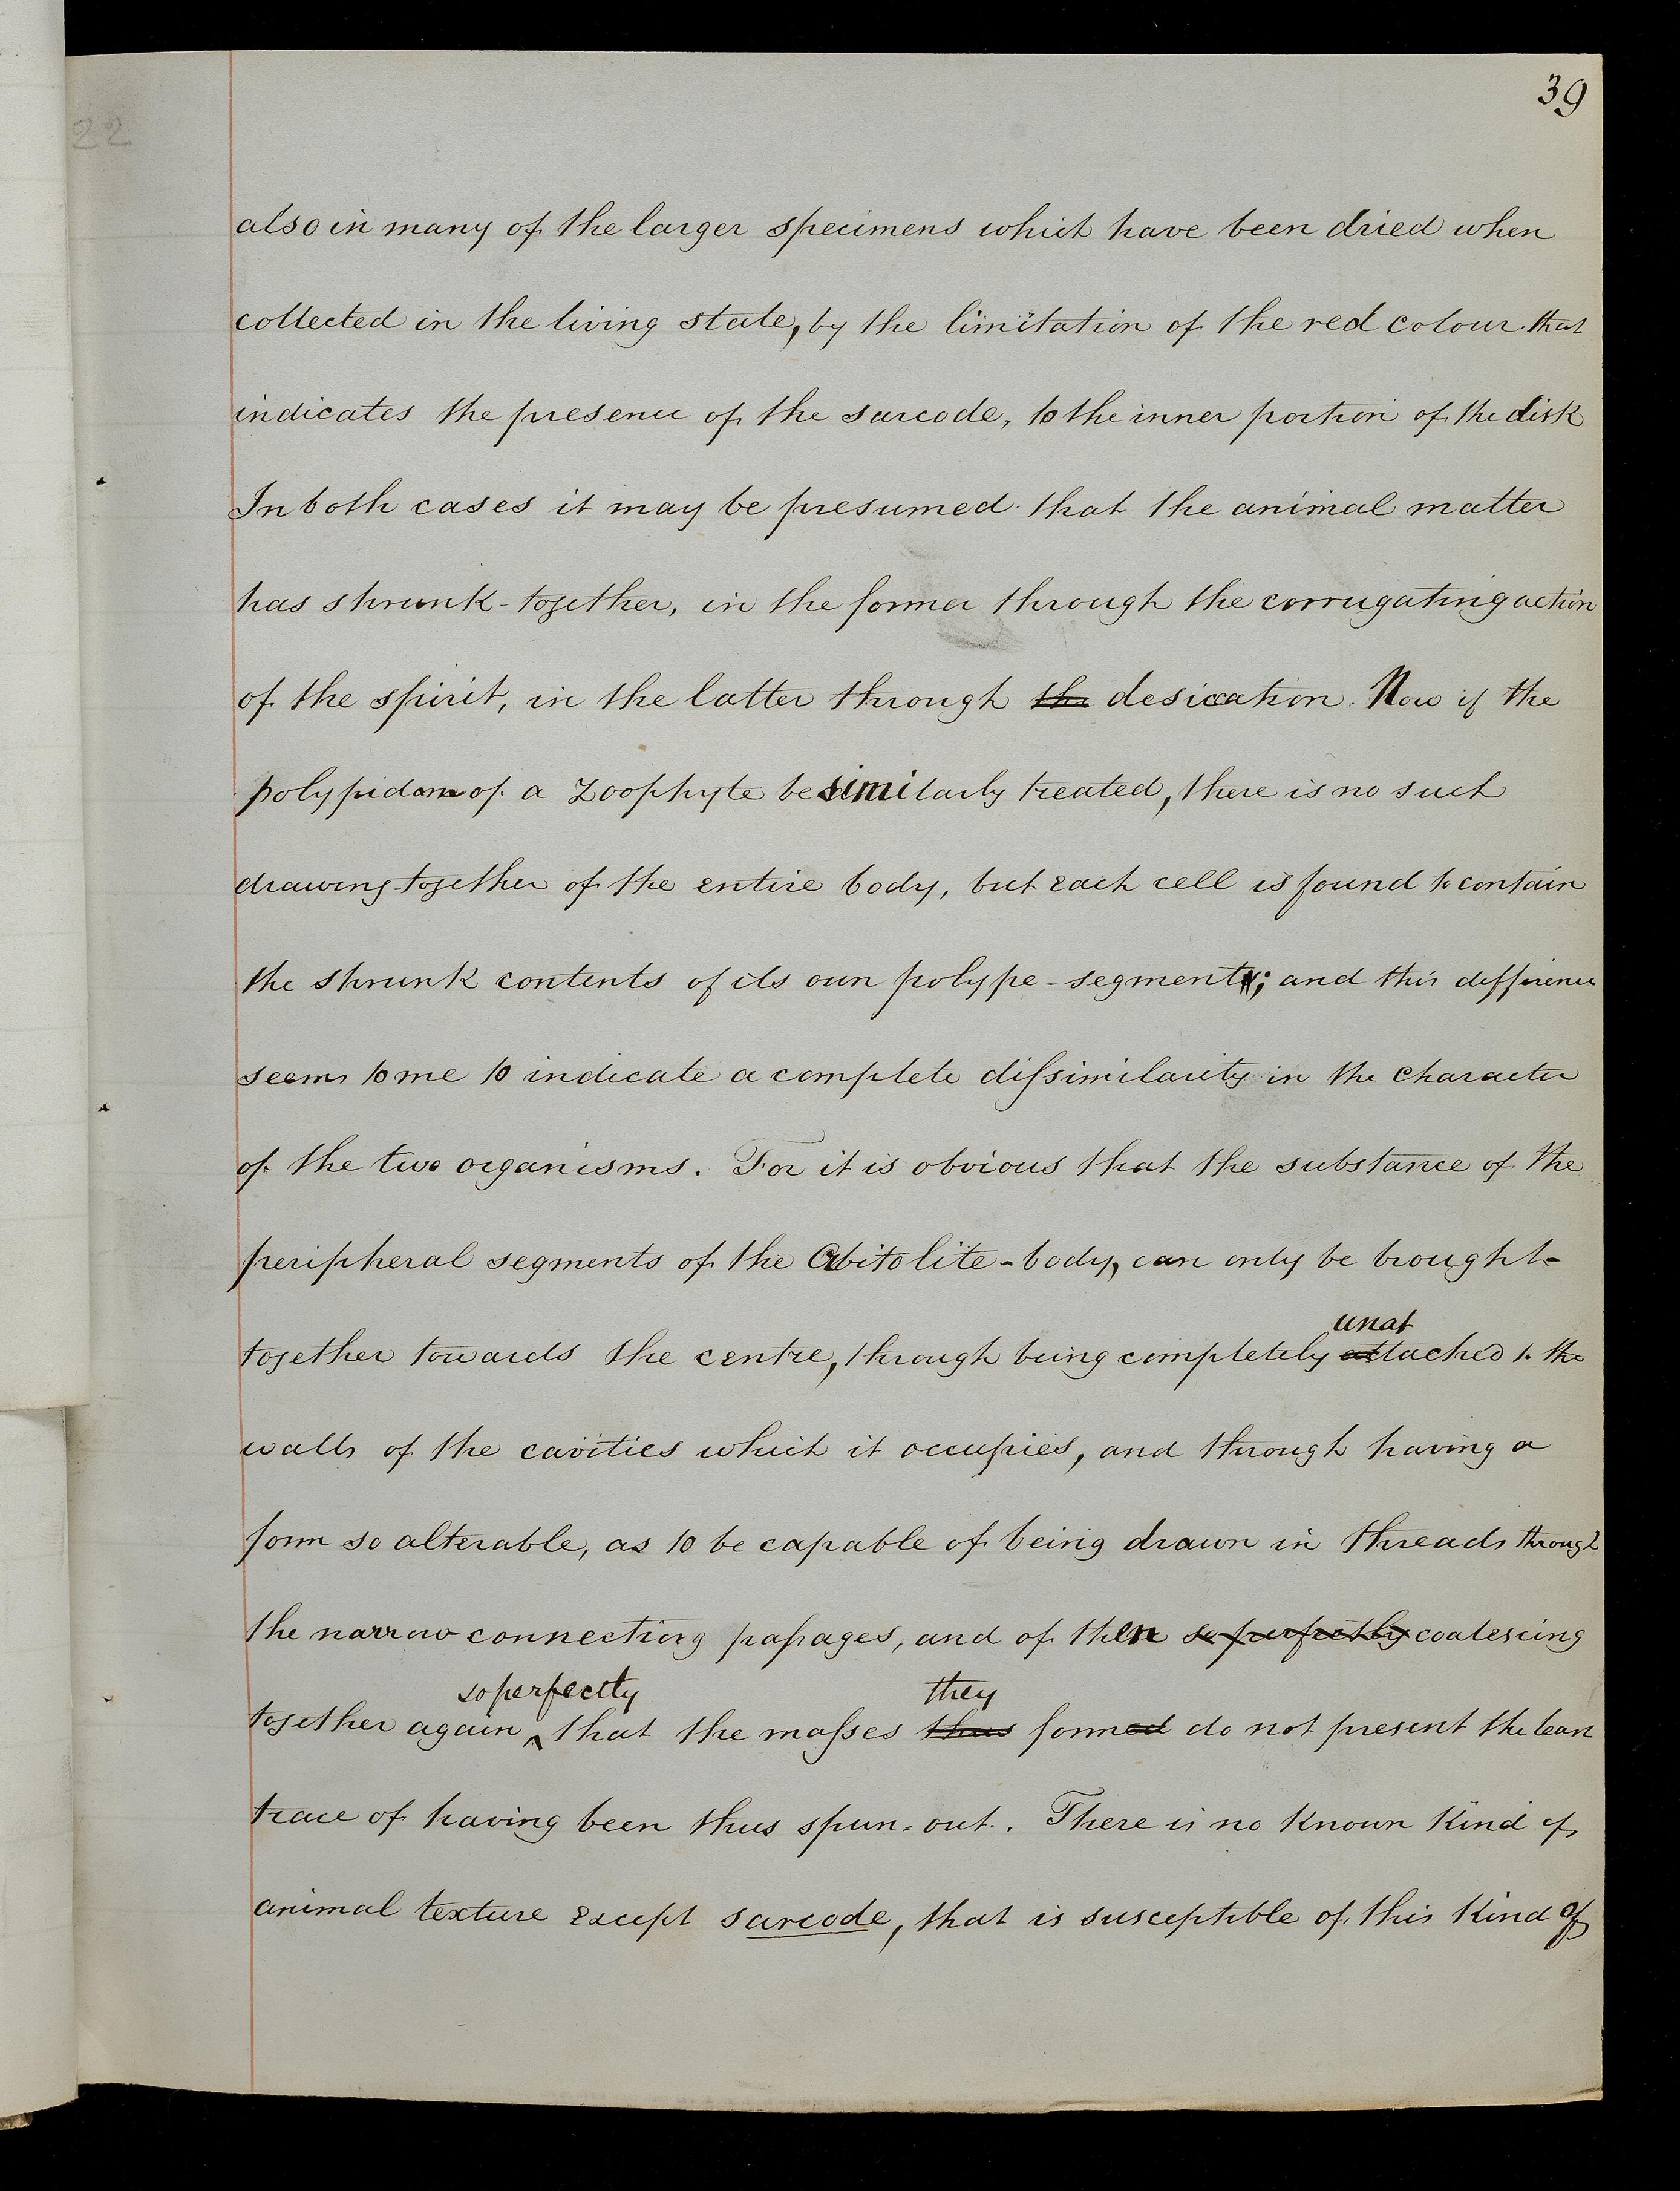 39
22
also in many of the larger specimens which have been dried when
collected in the living state, by the limitation of the red colour that
indicates the presence of the sarcode, to the inner portion of the disk
In both cases it may be presumed that the animal matter
has shrunk-together, in the former through the corrugating action
of the spirit, in the latter through the desiccation. Now if the
polypidom of a Zoophyte be similarly treated, there is no such
drawing-together of the entire body, but each cell is found to contain
the shrunk contents of its own polype-segment; and this difference
seems to me to indicate a complete dissimilarity in the character
of the two organisms. For it is obvious that the substance of the
peripheral segments of the Orbitolite-body, can only be brought-
unat
together towards the centre, through being completely attached to the
walls of the cavities which it occupies, and through having a
form so alterable, as to be capable of being drawn in threads through
the narrow connecting passages, and of then so perfectly coalescing
so perfectly they
together again ‸ that the masses thus formed do not present the least
trace of having been thus spun-out. There is no known kind of
animal texture except sarcode, that is susceptible of this kind of